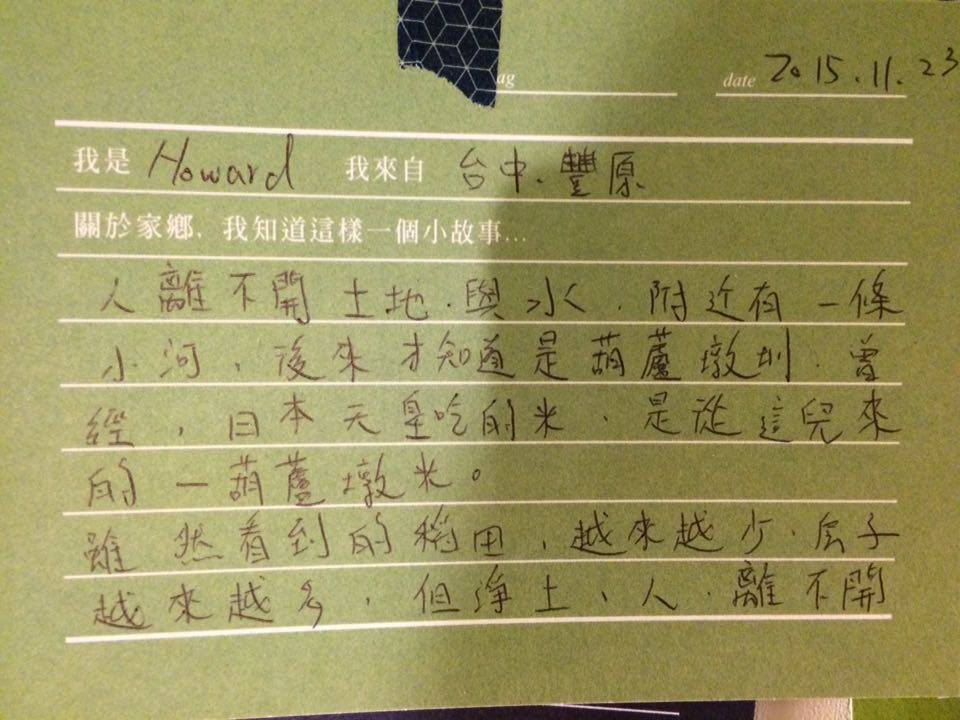 ag
date 2015.11.23
我是 Howard 我來自 台中、豐原
關於家鄉，我知道這樣一個小故事...
人離不開土地、與水、附近有一條
小河，後來才知道是葫蘆墩圳、曾
經，日本天皇吃的米、是從這兒來
的－葫蘆墩米。
雖然看到的稻田，越來越少、房子
越來越多，但淨土、人、離不開